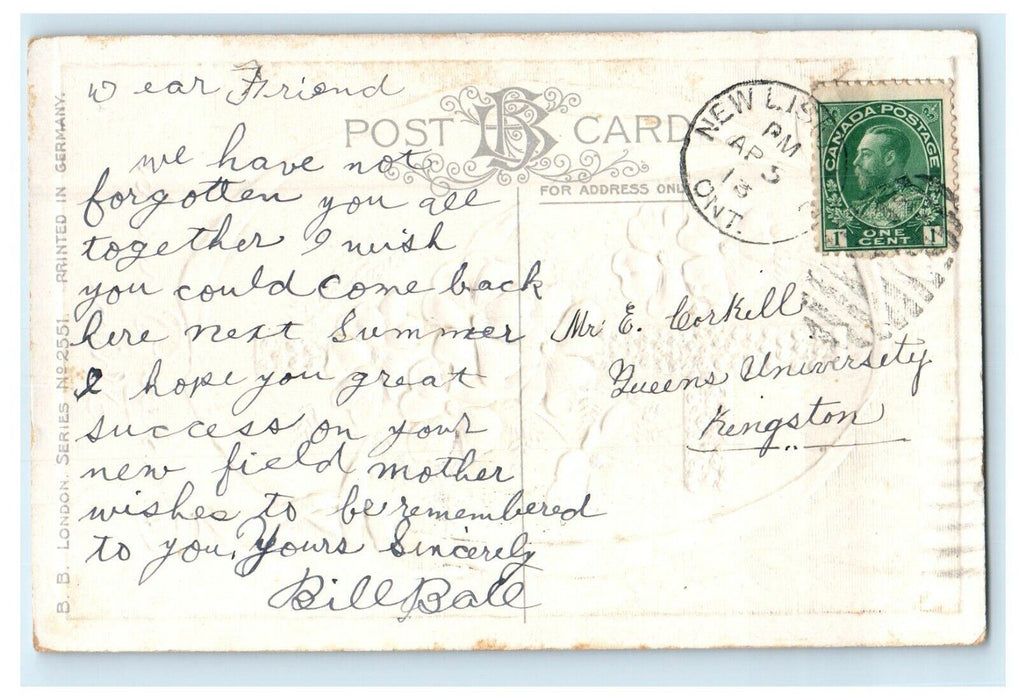 Dear Friend
we have not
forgotten you all
together I wish
you could come back
here next Summer
I hope you great
success on your
new field mother
wishes to be remembered
to you. Yours Sincerely
Bill Ball
POST CARD
BB
FOR ADDRESS ONLY
NEW LIS
PM
AP 3
13
ONT.
CANADA POSTAGE
1 ONE CENT 1
Mr E. Corkill
Queens University
Kingston
B. B. LONDON. SERIES No 2551. PRINTED IN GERMANY.